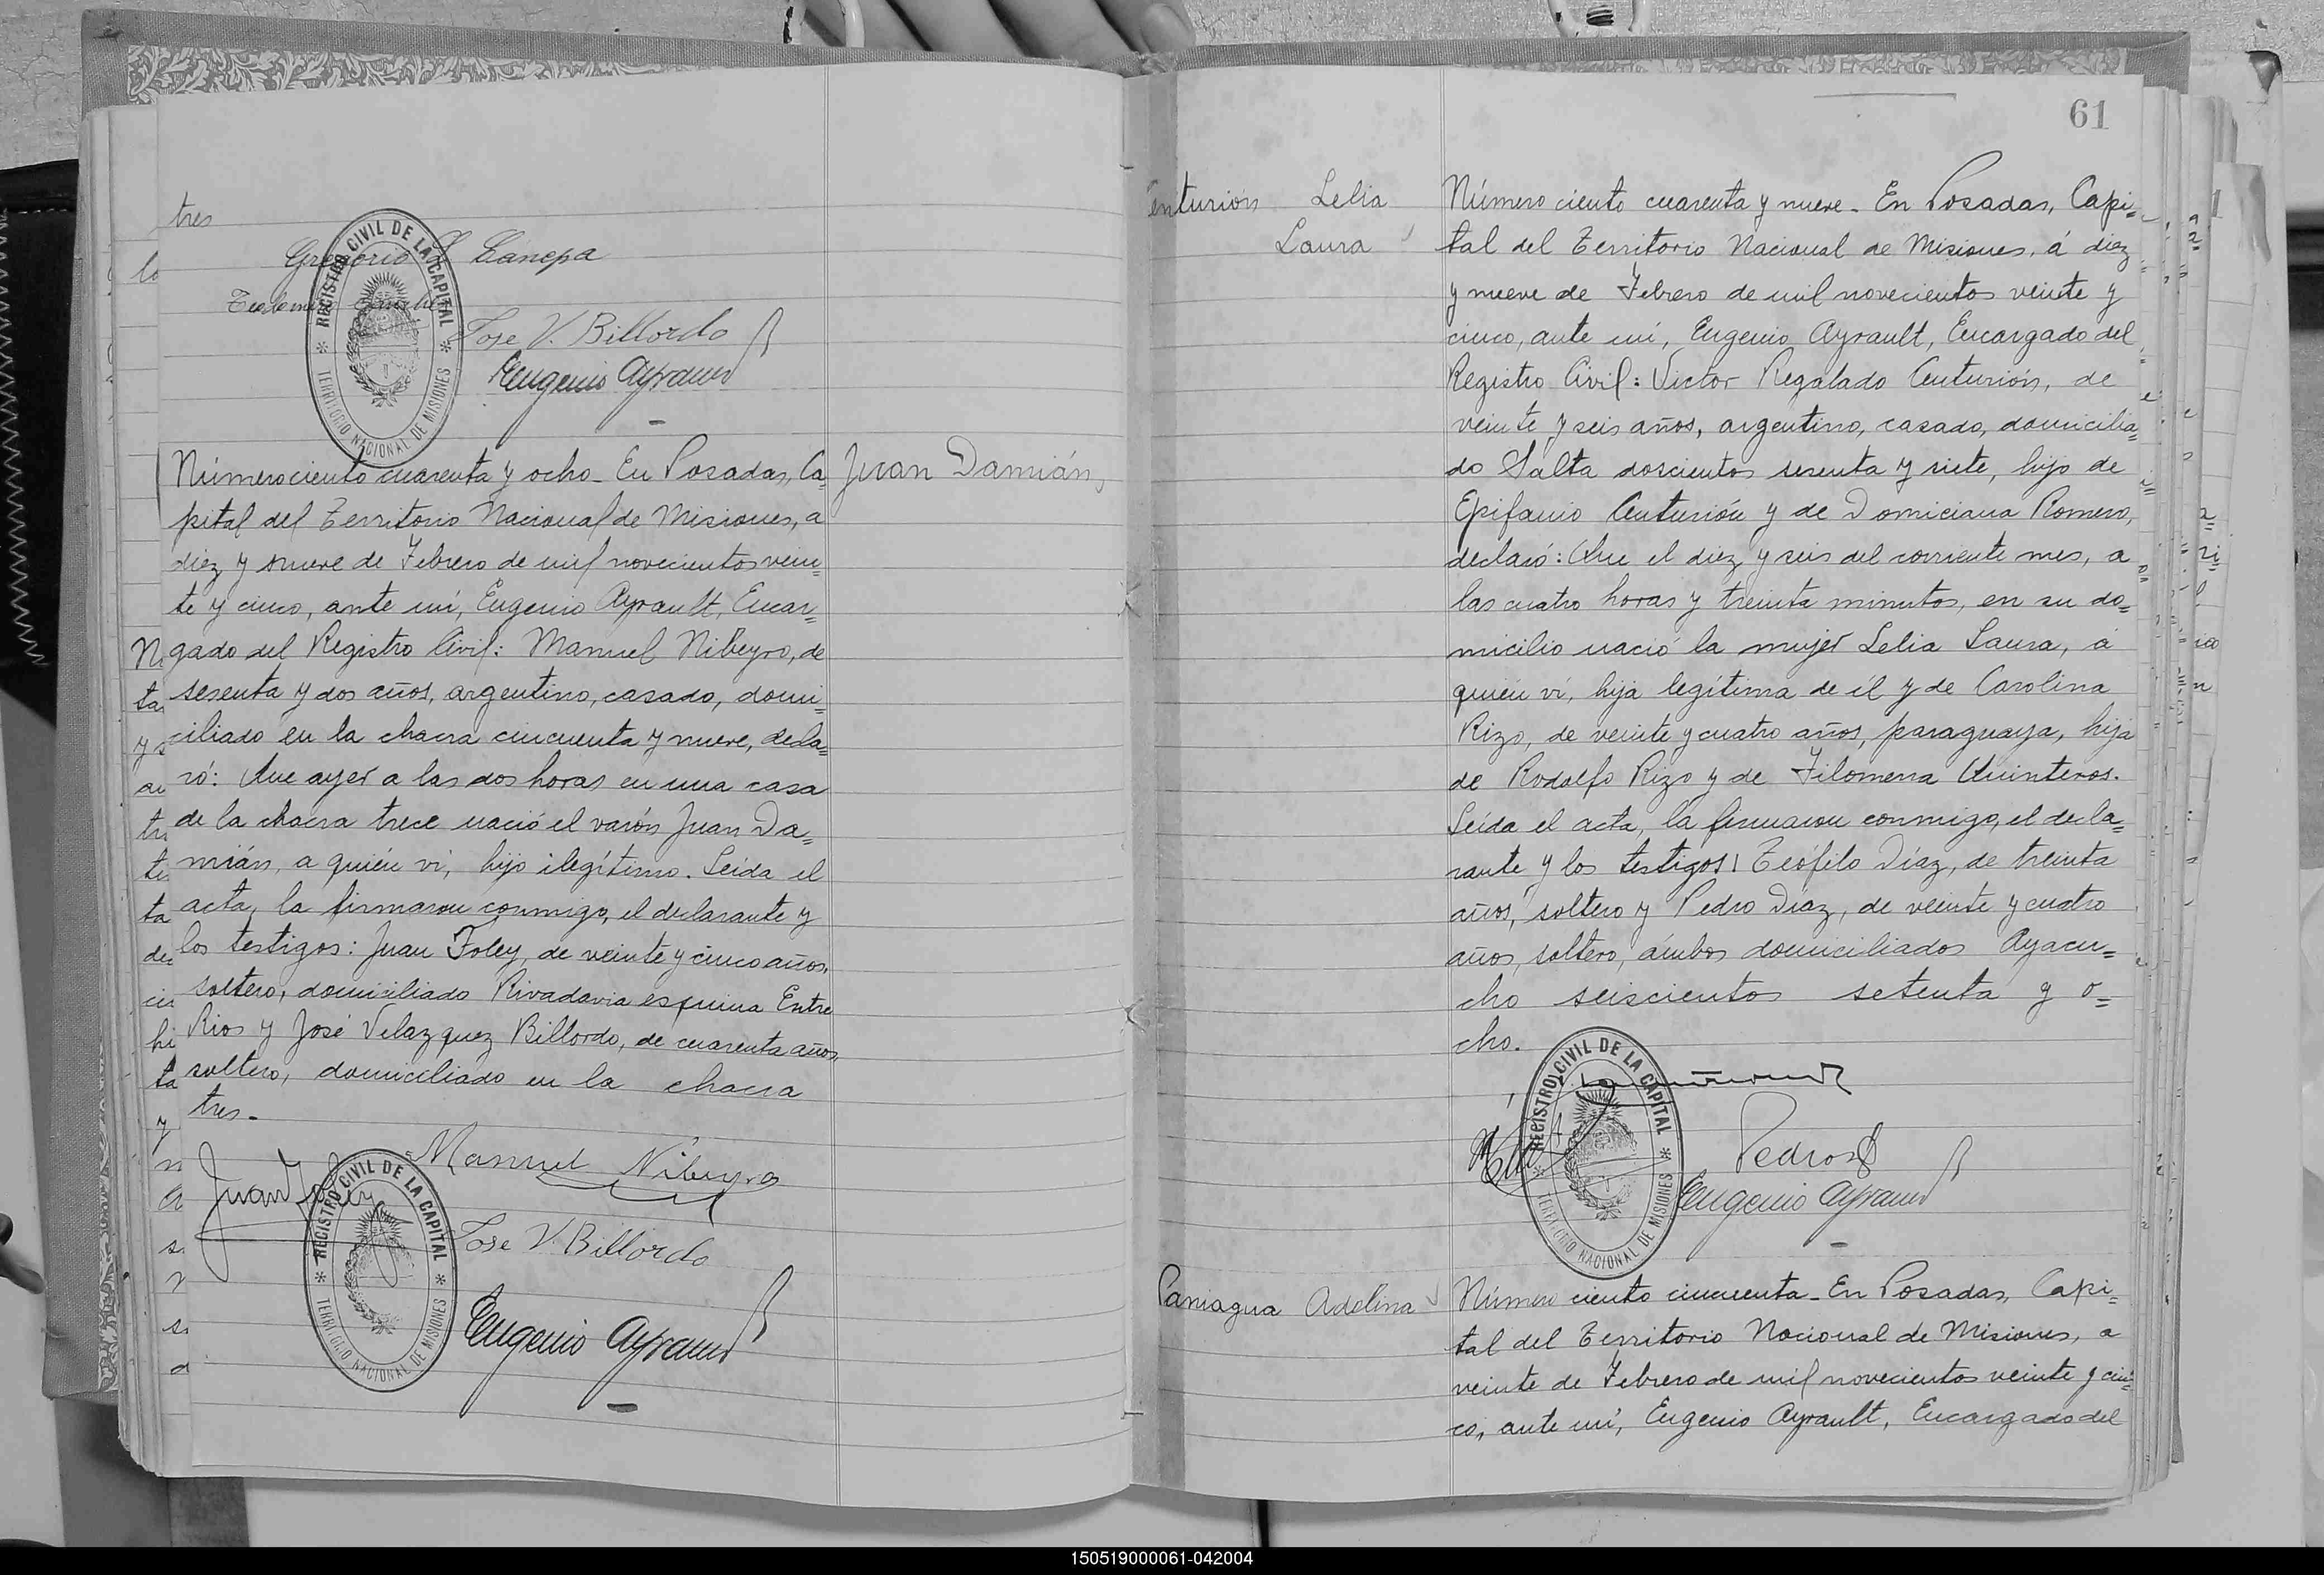 tres
Gregorio L Canepa
Jose V. Billordo
Eugenio Ayrault
REGISTRO CIVIL DE LA CAPITAL
* TERRITORIO NACIONAL DE MISIONES *
Número ciento cuarenta y ocho - En Posadas, Ca=
Juan Damián,
pital del Territorio Nacional de Misiones, a
diez y nueve de Febrero de mil novecientos vein=
te y cinco, ante mí, Eugenio Ayrault, Encar=
gado del Registro Civil: Manuel Nibeyro, de
sesenta y dos años, argentino, casado, domi=
ciliado en la chacra cincuenta y nueve, decla=
ró: Que ayer a las dos horas en una casa
de la chacra trece nació el varón Juan Da=
mián, a quién vi, hijo ilegítimo. Leída el
acta, la firmaron conmigo, el declarante y
los testigos: Juan Foley, de veinte y cinco años,
soltero, domiciliado Rivadavia esquina Entre
Rios y José Velazquez Billordo, de cuarenta años,
soltero, domiciliado en la chacra
tres -
Manuel Nibeyro
Juan Foley
Jose V. Billordo
Eugenio Ayrault
REGISTRO CIVIL DE LA CAPITAL
* TERRITORIO NACIONAL DE MISIONES *
61
enturión Lelia
Laura
Número ciento cuarenta y nueve - En Posadas, Capi=
tal del Territorio Nacional de Misiones, á diez
y nueve de Febrero de mil novecientos veinte y
cinco, ante mí, Eugenio Ayrault, Encargado del
Registro Civil: Victor Regalado Centurión, de
veinte y seis años, argentino, casado, domicilia=
do Salta doscientos sesenta y siete, hijo de
Epifanio Centurión y de Domiciana Romero,
declaró: Que el diez y seis del corriente mes, a
las cuatro horas y treinta minutos, en su do=
micilio nació la mujer Lelia Laura, á
quién vi, hija legítima de él y de Carolina
Rizo, de veinte y cuatro años, paraguaya, hija
de Rodolfo Rizo y de Filomena Quinteros.
Leída el acta, la firmaron conmigo, el decla=
rante y los testigos: Teófilo Díaz, de treinta
años, soltero y Pedro Díaz, de veinte y cuatro
años, soltero, ámbos domiciliados Ayacu=
cho seiscientos setenta y o=
cho.
Pedro
Eugenio Ayrault
REGISTRO CIVIL DE LA CAPITAL
* TERRITORIO NACIONAL DE MISIONES *
Paniagua Adelina
Número ciento cincuenta - En Posadas, Capi=
tal del Territorio Nacional de Misiones, a
veinte de Febrero de mil novecientos veinte y cin=
co, ante mí, Eugenio Ayrault, Encargado del
150519000061-042004